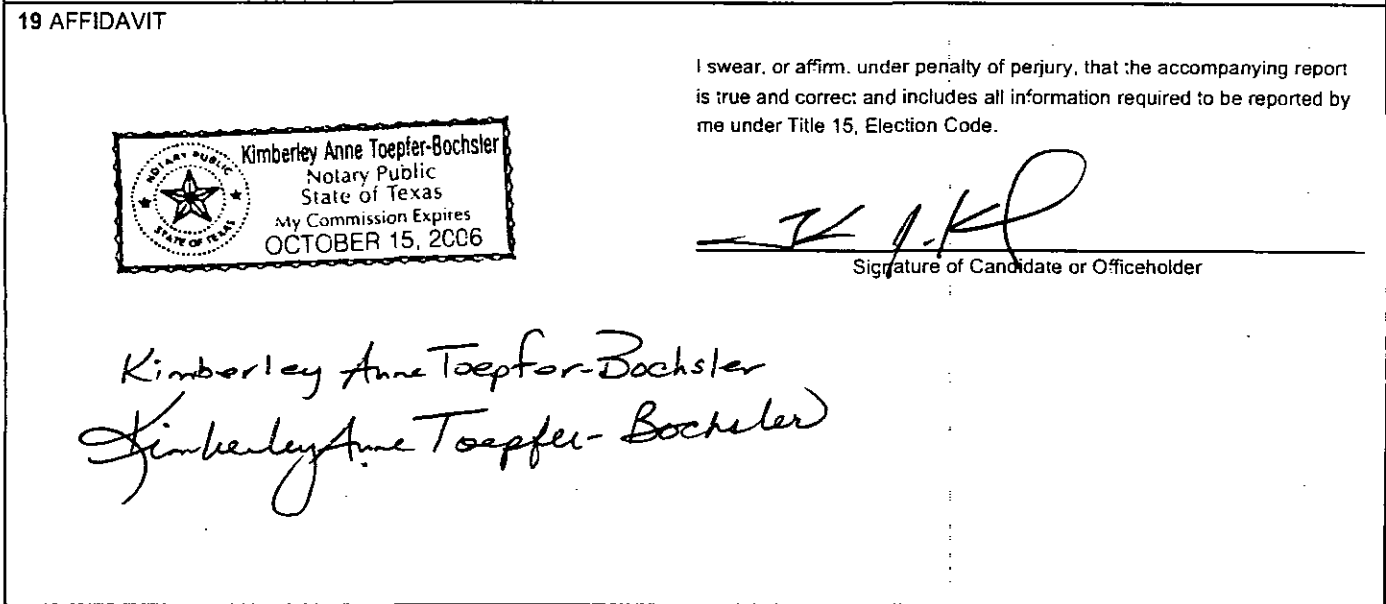 19 AFFIDAVIT
I swear, or affirm, under penalty of perjury, that the accompanying report
is true and correct and includes all information required to be reported by
me under Title 15, Election Code.
NOTARY PUBLIC
STATE OF TEXAS
Kimberley Anne Toepfer-Bochsler
Notary Public
State of Texas
My Commission Expires
OCTOBER 15, 2006
Signature of Candidate or Officeholder
Kimberley Anne Toepfer-Bochsler
Kimberley Anne Toepfer-Bochsler